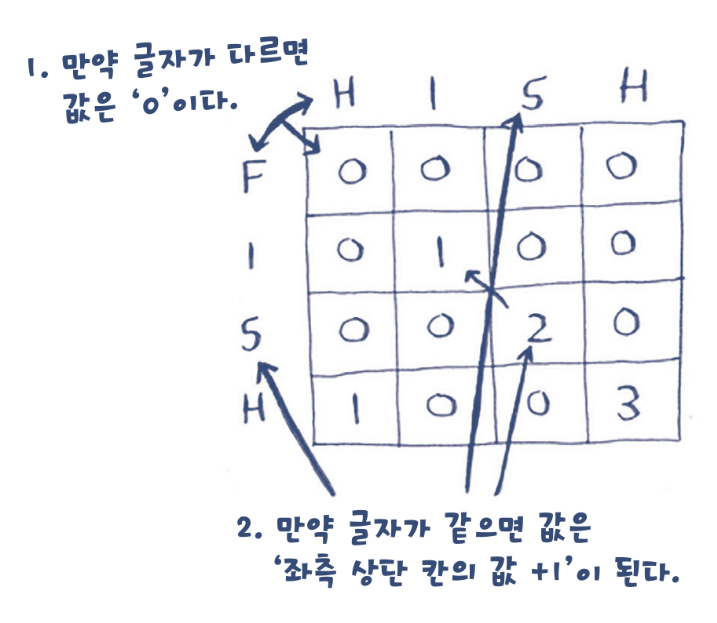 1. 만약 글자가 다르면
값은 ‘0’이다.
H I S H
F 0 0 0 0
I 0 1 0 0
S 0 0 2 0
H 1 0 0 3
2. 만약 글자가 같으면 값은
‘좌측 상단 칸의 값 +1’이 된다.